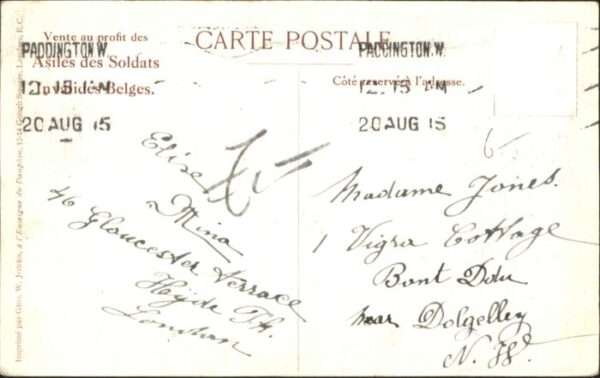 Vente au profit des
Asiles des Soldats
Invalides Belges.
CARTE POSTALE
Côté reservé à l'adresse.
PADDINGTON.W.
12.15 PM
20 AUG 15
PADDINGTON.W.
12.15 PM
20 AUG 15
Elise
Mina
46 Gloucester Terrace
Hyde Pk.
London
Madame Jones.
1 Vigra Cottage
Bont Ddu
Near Dolgelley
N. W.
Imprimé par Geo. W. Jones, à l'Enseigne du Dauphin, Gough Square, London, E.C.